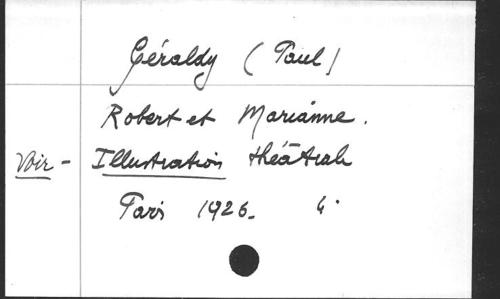 Géraldy (Paul)
Robert et Marianne.
Voir - Illustration théâtrale
Paris 1926. 4°